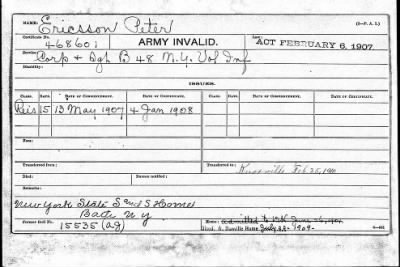 NAME: Ericsson Peter (3-P. A. I.)
Certificate No. 468601 ARMY INVALID. ACT FEBRUARY 6, 1907.
Service: Corp + Sgt B 48 N.Y. Vol Inf
Disability:
ISSUES.
CLASS. RATE. DATE OF COMMENCEMENT. DATE OF CERTIFICATE. CLASS. RATE. DATE OF COMMENCEMENT. DATE OF CERTIFICATE.
Reis 15 13 May 1907 4 Jan 1908
Transferred from: Transferred to: Knoxville Feb. 25, 
Died: Bureau notified:
Remarks:
New York State S and S Home
Bath N Y
Former Roll No. 15535 (ag) Home: admitted to
Died,